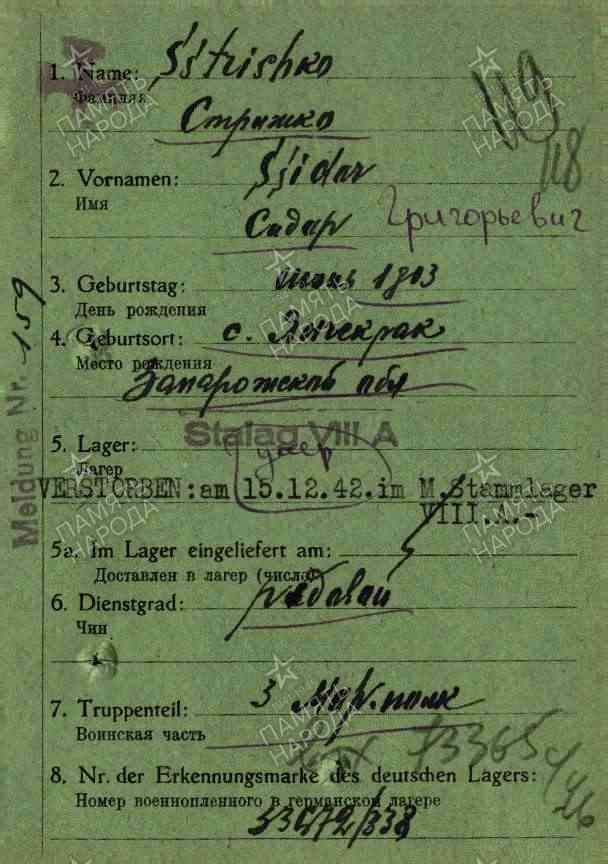 1. Name: Sstrishko
Фамилия
Стришко
2. Vornamen: Ssidar
Имя
Сидар Григорьевич
3. Geburtstag: 1903
День рождения
4. Geburtsort: с. Янчекрак
Место рождения
Запарожской обл
Meldung Nr. 159
Stalag VIII A
5. Lager: умер
Лагерь
VERSTORBEN: am 15.12.42. im M.Stammlager
VIII.A.-
5a. Im Lager eingeliefert am:
Доставлен в лагерь (число)
6. Dienstgrad: рядовой
Чин
7. Truppenteil: 3 Мар. полк
Воинская часть
8. Nr. der Erkennungsmarke des deutschen Lagers:
Номер военнопленного в германском лагере
ПАМЯТЬ
НАРОДА